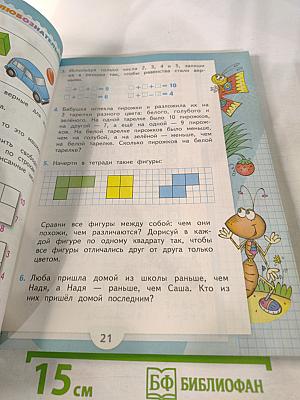 ЛЮБОЗНАТЕЛЬН
3. Используя только числа 2, 3, 4 и 5, запиши
их в рамки так, чтобы равенства стали вер-
ными.
4. Бабушка испекла пирожки и разложила их на
3 тарелки разного цвета: белого, голубого и
зелёного. На одной тарелке было 10 пирожков,
на другой — 7, а ещё на одной — 9 пирож-
ков. На белой тарелке пирожков было меньше,
чем на голубой, а на зелёной — меньше, чем
на белой тарелке. Сколько пирожков на белой
тарелке?
5. Начерти в тетради такие фигуры:
Сравни все фигуры между собой: чем они
похожи, чем различаются? Дорисуй в каж-
дой фигуре по одному квадрату так, чтобы
все фигуры отличались друг от друга только
цветом.
6. Люба пришла домой из школы раньше, чем
Надя, а Надя — раньше, чем Саша. Кто из
них пришёл домой последним?
21
15 см
БФ БИБЛИОФАН